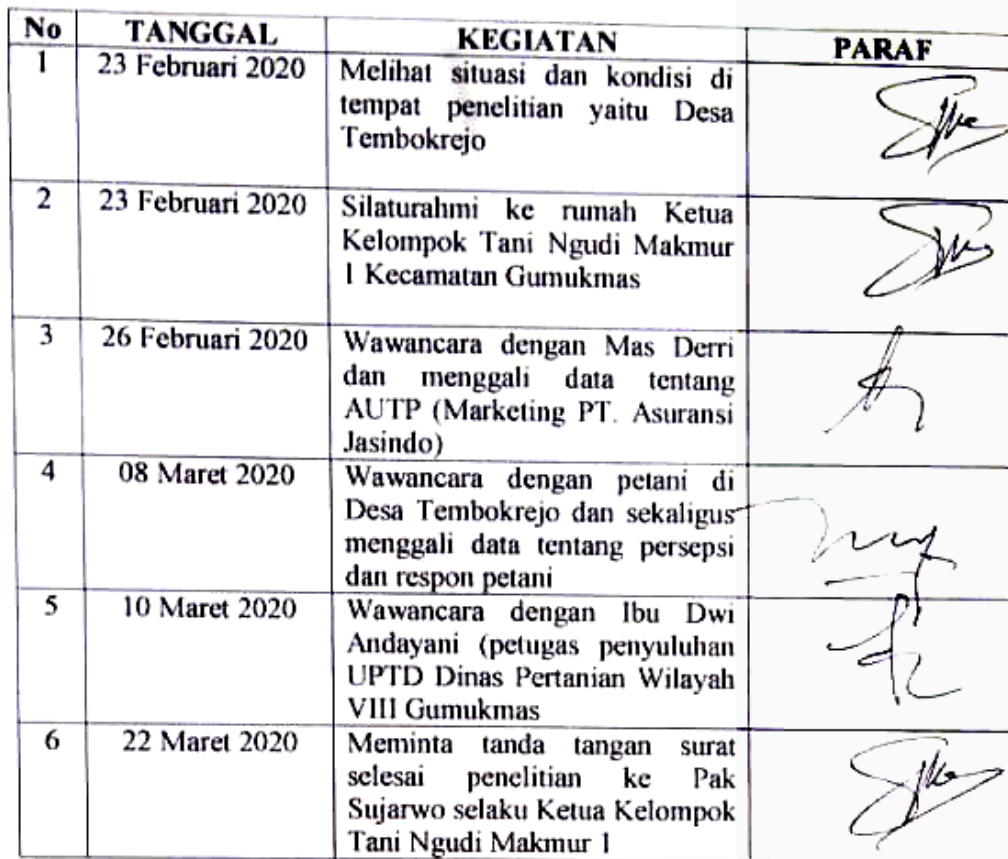 No TANGGAL KEGIATAN PARAF
1 23 Februari 2020 Melihat situasi dan kondisi di
tempat penelitian yaitu Desa
Tembokrejo
2 23 Februari 2020 Silaturahmi ke rumah Ketua
Kelompok Tani Ngudi Makmur
1 Kecamatan Gumukmas
3 26 Februari 2020 Wawancara dengan Mas Derri
dan menggali data tentang
AUTP (Marketing PT. Asuransi
Jasindo)
4 08 Maret 2020 Wawancara dengan petani di
Desa Tembokrejo dan sekaligus
menggali data tentang persepsi
dan respon petani
5 10 Maret 2020 Wawancara dengan Ibu Dwi
Andayani (petugas penyuluhan
UPTD Dinas Pertanian Wilayah
VIII Gumukmas
6 22 Maret 2020 Meminta tanda tangan surat
selesai penelitian ke Pak
Sujarwo selaku Ketua Kelompok
Tani Ngudi Makmur 1